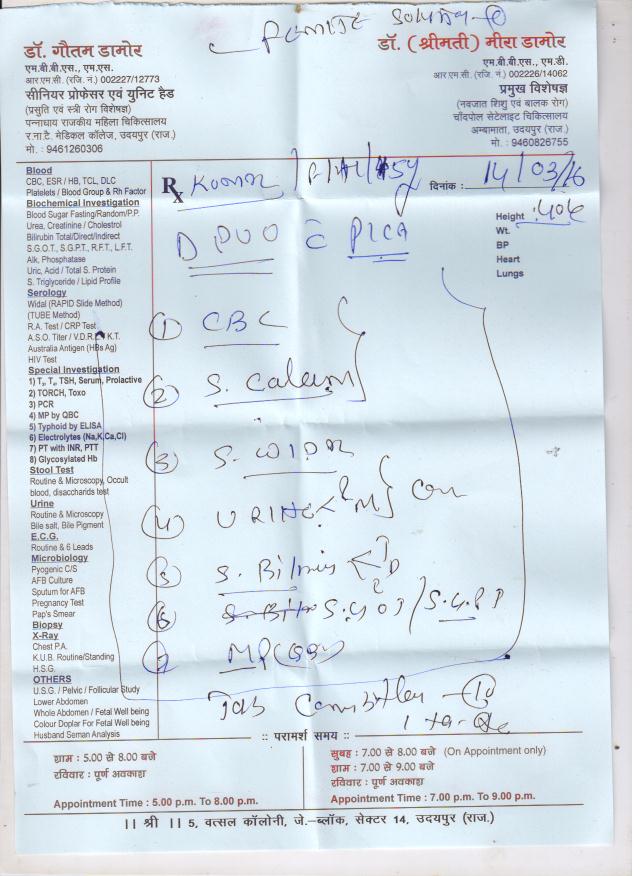 Solution
डॉ. गौतम डामोर
एम.बी.बी.एस., एम.एस.
आर.एम.सी. (रजि. नं.) 002227/12773
सीनियर प्रोफेसर एवं युनिट हैड
(प्रसुति एवं स्त्री रोग विशेषज्ञ)
पन्नाधाय राजकीय महिला चिकित्सालय
र.ना.टै. मेडिकल कॉलेज, उदयपुर (राज.)
मो. : 9461260306
डॉ. (श्रीमती) मीरा डामोर
एम.बी.बी.एस., एम.डी.
आर.एम.सी. (रजि. नं.) 002226/14062
प्रमुख विशेषज्ञ
(नवजात शिशु एवं बालक रोग)
चाँदपोल सेटेलाइट चिकित्सालय
अम्बामाता, उदयपुर (राज.)
मो. : 9460826755
Blood
CBC, ESR / HB, TCL, DLC
Platelets / Blood Group & Rh Factor
Biochemical Investigation
Blood Sugar Fasting/Random/P.P.
Urea, Creatinine / Cholestrol
Bilirubin Total/Direct/Indirect
S.G.O.T., S.G.P.T., R.F.T., L.F.T.
Alk. Phosphatase
Uric, Acid / Total S. Protein
S. Triglyceride / Lipid Profile
Serology
Widal (RAPID Slide Method)
(TUBE Method)
R.A. Test / CRP Test
A.S.O. Titer / V.D.R.L. K.T.
Australia Antigen (HBs Ag)
HIV Test
Special Investigation
1) T₃, T₄, TSH, Serum, Prolactive
2) TORCH, Toxo
3) PCR
4) MP by QBC
5) Typhoid by ELISA
6) Electrolytes (Na,K,Ca,Cl)
7) PT with INR, PTT
8) Glycosylated Hb
Stool Test
Routine & Microscopy, Occult
blood, disaccharids test
Urine
Routine & Microscopy
Bile salt, Bile Pigment
E.C.G.
Routine & 6 Leads
Microbiology
Pyogenic C/S
AFB Culture
Sputum for AFB
Pregnancy Test
Pap's Smear
Biopsy
X-Ray
Chest P.A.
K.U.B. Routine/Standing
H.S.G.
OTHERS
U.S.G. / Pelvic / Follicular Study
Lower Abdomen
Whole Abdomen / Fetal Well being
Colour Doplar For Fetal Well being
Husband Seman Analysis
Rx
दिनांक : 14/03/16
Height
Wt.
BP
Heart
Lungs
D PUO c̄ PICA
① CBC
②
③ S.
④ URINE
⑤ S.
⑥ S.G.O.T / S.G.P.T
⑦ MP
Tab
:: परामर्श समय ::
शाम : 5.00 से 8.00 बजे
रविवार : पूर्ण अवकाश
Appointment Time : 5.00 p.m. To 8.00 p.m.
सुबह : 7.00 से 8.00 बजे (On Appointment only)
शाम : 7.00 से 9.00 बजे
रविवार : पूर्ण अवकाश
Appointment Time : 7.00 p.m. To 9.00 p.m.
|| श्री || 5, वत्सल कॉलोनी, जे.-ब्लॉक, सेक्टर 14, उदयपुर (राज.)